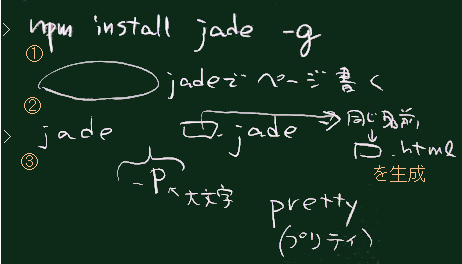 > npm install jade -g
①
jadeでページ書く
②
> jade □.jade → 同じ名前
□.html
③
を生成
-P 大文字
pretty
(プリティ)